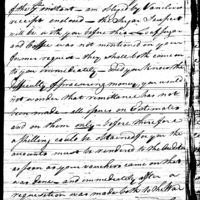 of the 9th instant — on Sloped by Vanderin
receipt enclosed — the Sugar I expect
will be with you before this — Saffryn
and Coffee was not mentioned in your
former request — they shall both come
to you immediately — did you know the
difficulty of procuring money you would
not wonder that remittance has not
been made — all passes on Estimates
and on them only — before therefore
a shilling could be Obtained for you the
accounts must be rendered to the Auditor
as soon as your vouchers came on that
was done, and immediately after a
requisition was made both to the War